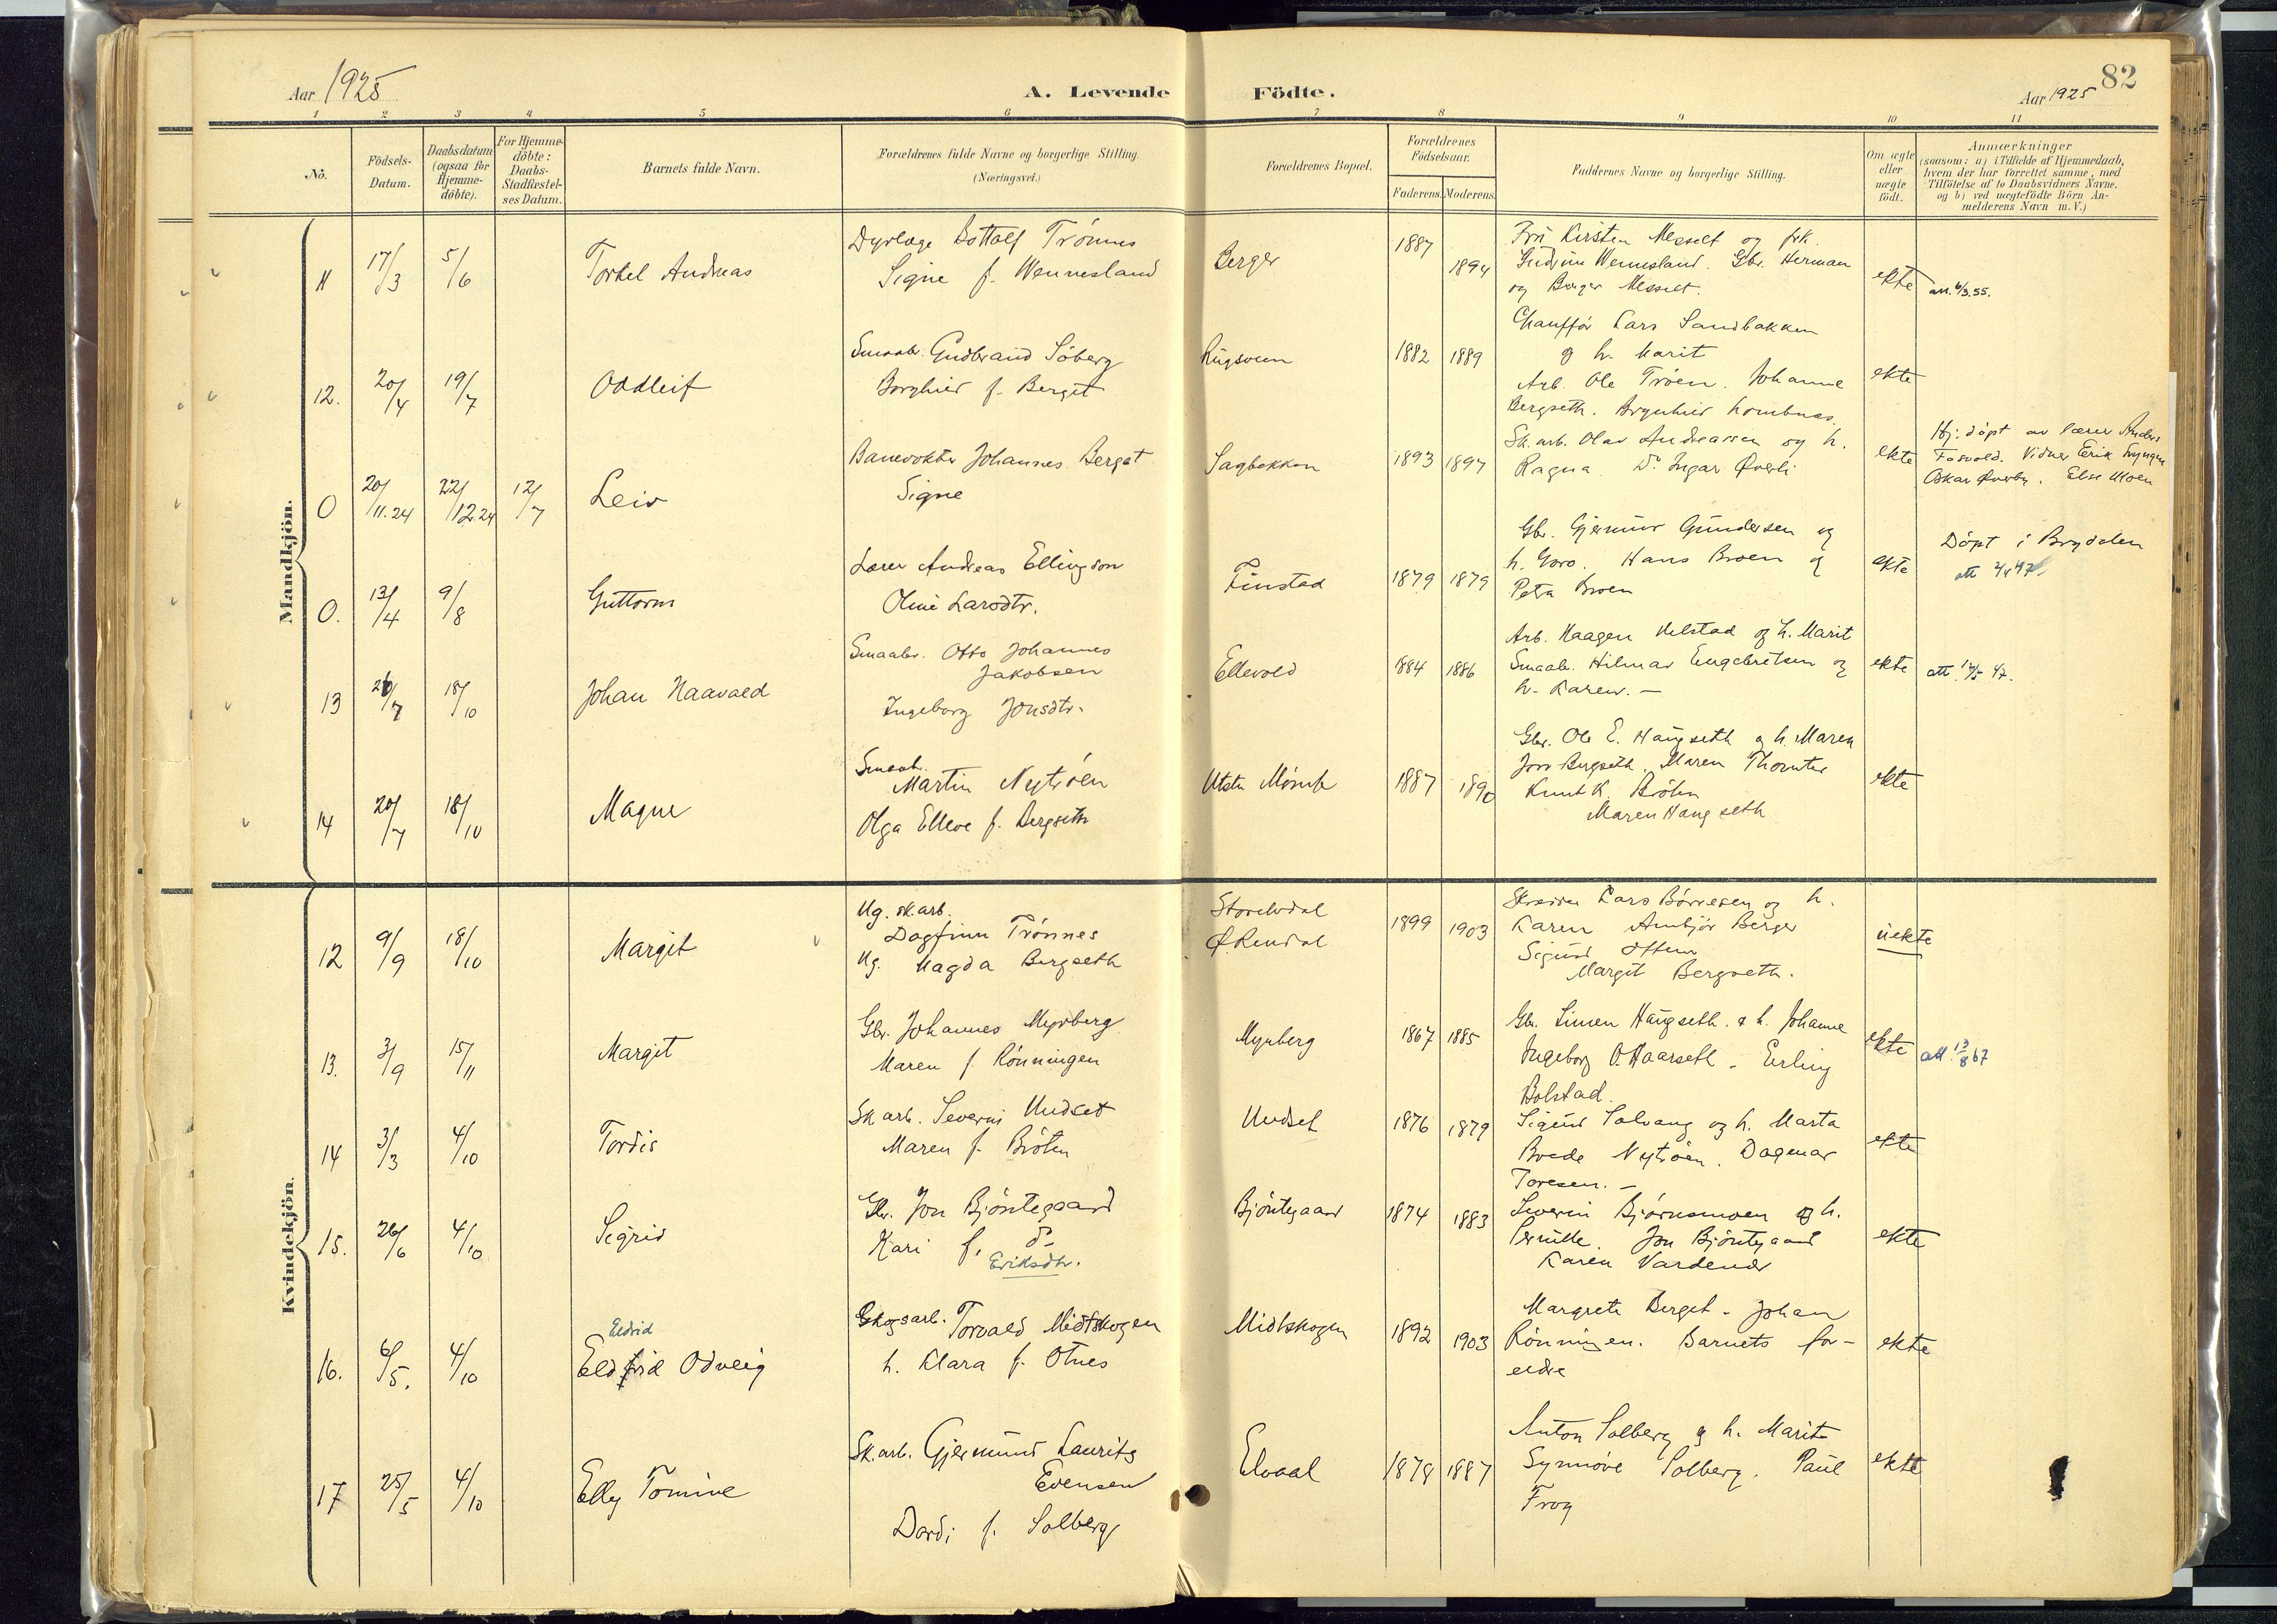 Aar 1925
A. Levende Födte.
Aar 1925
82
1 2 3 4 5 6 7 8 9 10 11
No.
Födsels-
Datum.
Daabsdatum
(ogsaa for
Hjemme-
döbte).
For Hjemme-
döbte:
Daabs-
Stadfæstel-
ses Datum.
Barnets fulde Navn.
Forældrenes fulde Navne og borgerlige Stilling
(Næringsvei.)
Forældrenes Bopæl.
Forældrenes
Födselsaar.
Faderens. Moderens.
Faddernes Navne og borgerlige Stilling.
Om ægte
eller
uægte
födt.
Anmærkninger
(saasom: a) i Tilfælde af Hjemmedaab,
hvem der har forrettet samme, med
Tilföielse af to Daabsvidners Navne.
og b) ved uægtefödte Börn An-
melderens Navn m. V.)
Mandkjön.
11 17/3 5/6 Torkel Andreas
Dyrlæge Bottolf Trönnes
Signe f. Wennesland
Berger 1887 1894
Fru Kirsten Messelt og frk.
Gudrun Wennesland. Gbr. Herman
og Borger Messelt.
ekte att. 4/3.55.
12. 20/4 19/7 Oddleif
Smaabr. Gudbrand Söberg
Borghild f. Berget
Rugsveen 1882 1889
Chaufför Lars Sandbakken
og h. Marit
Arb. Ole Tröen. Johanne
Bergseth. Brynhild
ekte
0 20/11.24 22/12.24 12/7 Leiv
Banevokter Johannes Berget
Signe
Sagbakken 1893 1897
Sk. arb. Olav Andreassen og h.
Ragna. Do Ingar Øverli
ekte
Hj: döpt av lærer Anders
Fosvold. Vidner Erik
Oskar Øverby. Else Moen
0. 13/4 9/8 Guttorm
Lærer Andreas Ellingson
Oline Larsdtr.
Finstad 1879 1879
Gbr. Gjermund Gundersen og
h. Goro. Hans Broen og
Petra Broen
ekte
Döpt i Brydalen
13 26/7 18/10 Johan Haavald
Smaabr. Otto Johannes
Jakobsen
Ingeborg Jonsdtr.
Ellevold 1884 1886
Arb. Haagen Helstad og h. Marit
Smaabr. Hilmar Engebretsen og
h. Karen. –
ekte att. 14/5 47.
14 20/7 18/10 Magne
Smaabr.
Martin Nytröen
Olga Elleve f. Bergseth
Utstu Mömb 1887 1890
Gbr. Ole E. Haugseth og h. Maren
Jon Bergseth. Maren Thornter
Knut K. Bröten
Maren Haugseth
ekte
Kvindekjön.
12 9/9 18/10 Margit
Ug. sk. arb.
Dagfinn Trönnes
Ug. Magda Bergseth
Storelvdal
Ø. Rendal
1899 1903
Lars Börresen og h.
Karen Ambjör Berger
Sigurd
Margit Bergseth.
uekte
13. 3/9 15/11 Margit
Gbr. Johannes Myrberg
Maren f. Rönningen
Myrberg 1867 1885
Gbr. Simen Haugseth. & h. Johanne
Ingeborg O. Haarseth. Erling
Bolstad.
ekte att. 13/8 67
14 3/3 4/10 Tordis
Sk arb. Severin Undset
Maren f. Bröten
Undset 1876 1879
Sigurd Solvang og h. Marta
Brede Nytröen. Dagmar
Toresen. –
ekte
15. 26/6 4/10 Sigrid
Gbr. Jon Bjöntegaard
Kari f. do
Eriksdtr.
Bjöntegaard 1874 1883
Severin Björnsmoen og h.
Pernille. Jon Bjöntegaard
Karen Vardenær
ekte
16. 6/5. 4/10
Eldrid
Eldfrid Odveig
Skogsarb. Torvald Midtskogen
h. Klara f. Otnes
Midtskogen 1892 1903
Margrete Berget. Johan
Rönningen. Barnets for-
eldre
ekte
17 25/5 4/10 Elly Tomine
Sk. arb. Gjermund Laurits
Evensen
Dordi f. Solberg
Elvaal 1878 1887
Anton Solberg og h. Marit
Synnöve Solberg. Paul
Frog
ekte